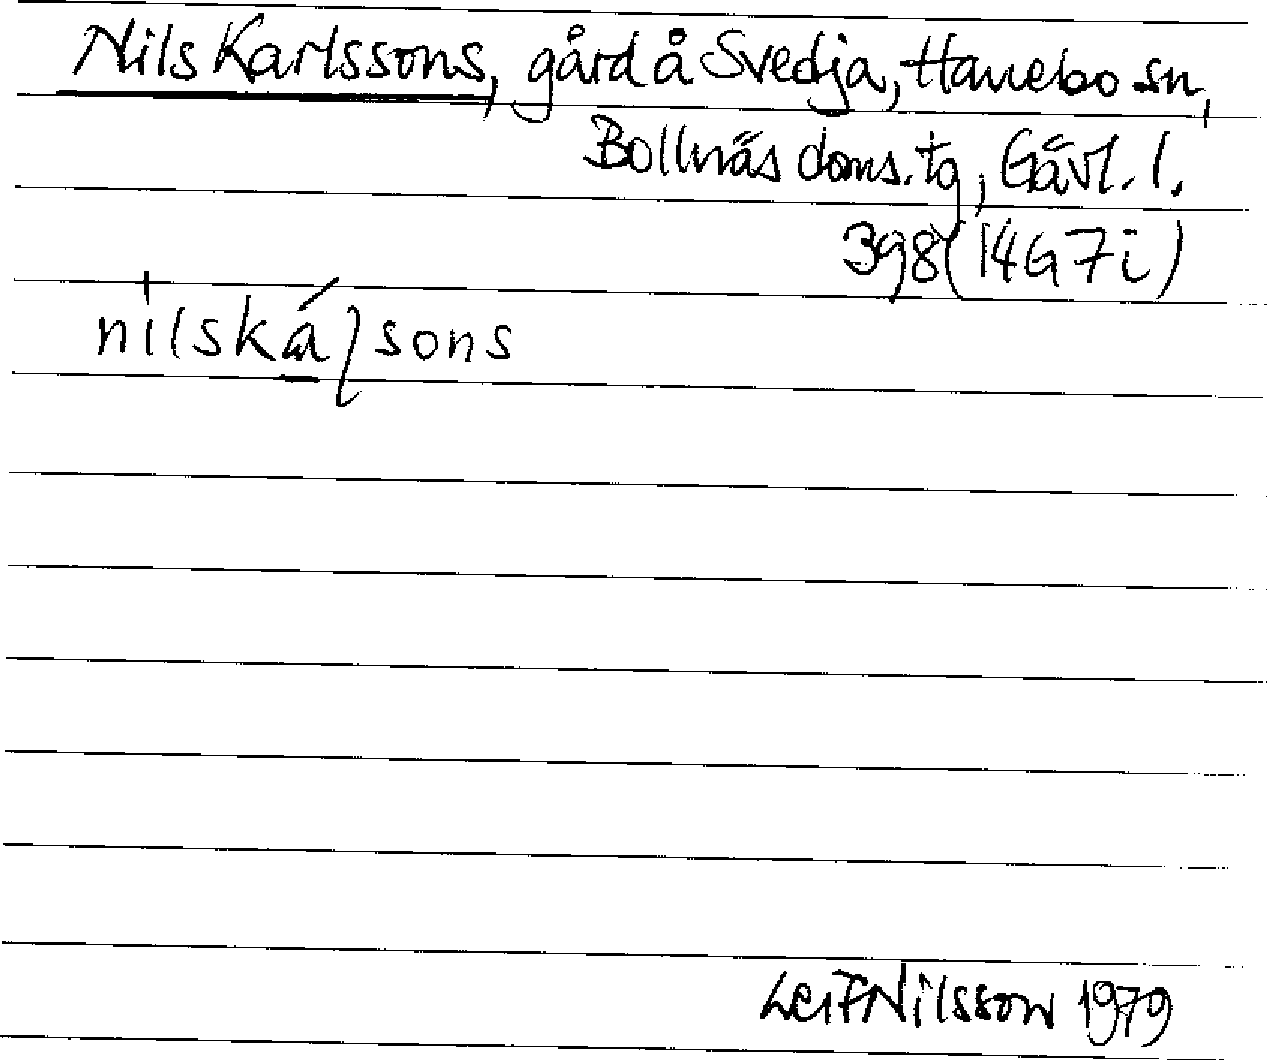 Nils Karlssons, gård å Svedja, Hanebo sn,
Bollnäs doms. tg, Gävl. l.
398 (14G 7i)
nilskáɭsons
Leif Nilsson 1979